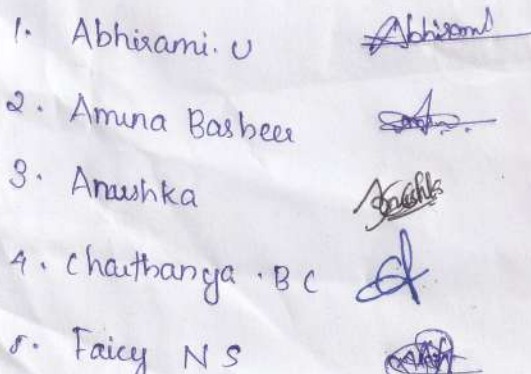 1. Abhirami. U Abhirami
2. Amina Basheer
3. Anushka Anushka
4. Chaithanya . B C
5. Faicy N S